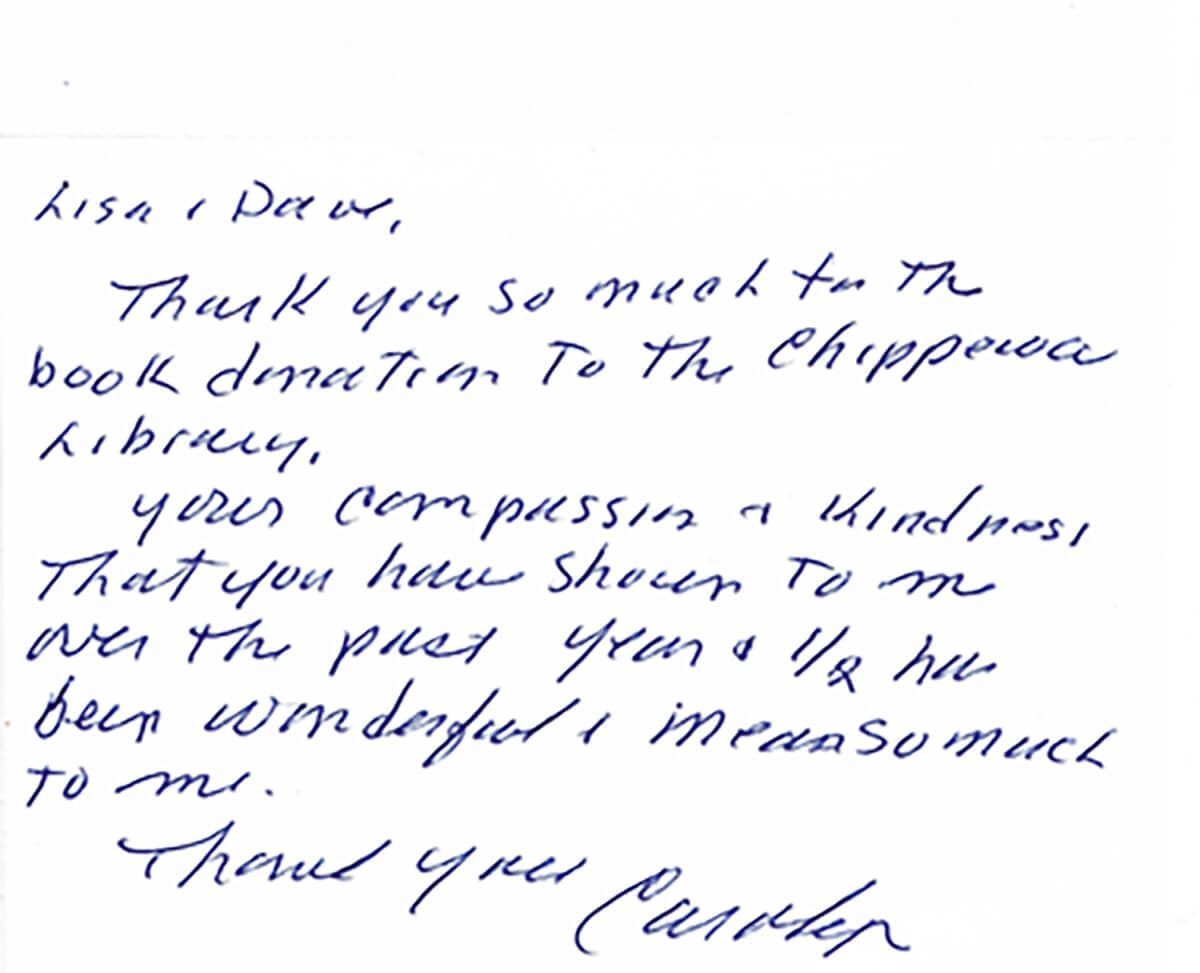 Lisa & Dave,
Thank you so much for the
book donation to the Chippewa
Library.
Your compassion & kindness
that you have shown to me
over the past year & 1/2 has
been wonderful & mean so much
to me.
Thank you